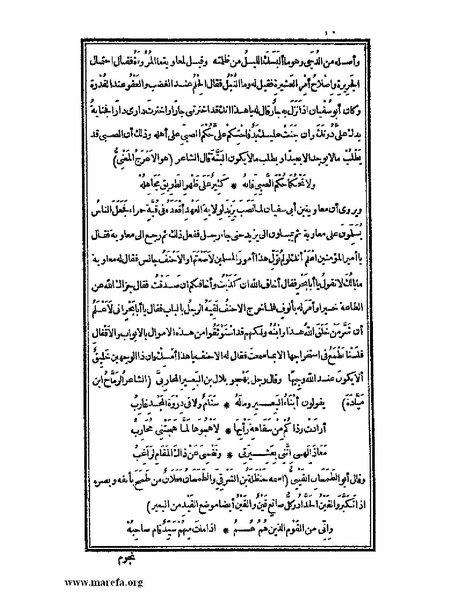 وأصله من الدجى وهو ما ألبسك الليل من ظلمته وقيل لمعاوية ما المروءة فقال احتمال
الجريرة واصلاح أمر العشيرة فقيل له وما النبل فقال الحلم عند الغضب والعفو عند القدرة
وكان أبو سفيان اذا نزل به جار قال له يا هذا انك قد اخترتني جارا واخترت داري دارا فجناية
يدك علي دونك وان جنت عليك يد فاحتكم علي حكم الصبي على أهله وذلك أن الصبي قد
يطلب ما لا يوجد الا بعيدا ويطلب ما لا يكون البتة قال الشاعر (هو الاعرج المعنى)
ولا تحكما حكم الصبي فانه * كثير على ظهر الطريق مجاهله
ويروى أن معاوية بن أبي سفيان لما نصب يزيد لولاية العهد أقعده في قبة حمراء فجعل الناس
يسلمون على معاوية ثم يميلون الى يزيد حتى جاء رجل ففعل ذلك ثم رجع الى معاوية فقال
يا أمير المؤمنين اعلم أنك لو لم تول هذا أمور المسلمين لأضعتها والاحنف جالس فقال له معاوية
ما بالك لا تقول يا أبا بحر فقال أخاف الله ان كذبت وأخافكم ان صدقت فقال جزاك الله عن
الطاعة خيرا وأمر له بألوف فلما خرج الاحنف لقيه الرجل بالباب فقال يا أبا بحر اني لأعلم
أن شر من خلق الله هذا وابنه ولكنهم قد استوثقوا من هذه الاموال بالابواب والاقفال
فلسنا نطمع في استخراجها الا بما سمعت فقال له الاحنف يا هذا أمسك فان ذا الوجهين خليق
ألا يكون عند الله وجيها وقال رجل يهجو بلال بن البعير المحاربي (الشاعر الرماح ابن
ميادة) يقولون أبناء البعير وماله * سنام ولا في ذروة المجد غارب
أرادت وذا كم من سفاهة رأيها * لأهجوها لما هجتني محارب
معاذ الهي انني بعشيرتي * ونفسي عن ذاك المقام لراغب
وقال أبو الطمحان القيني (اسمه حنظلة بن الشرقي والطمحان فعلان من طمح بأنفه وبصره
اذا تكبر والقين الحداد وكل صانع قين والقين أيضا موضع القيد من البعير)
واني من القوم الذين هم هم * اذا مات منهم سيد قام صاحبه
نجوم
www.marefa.org